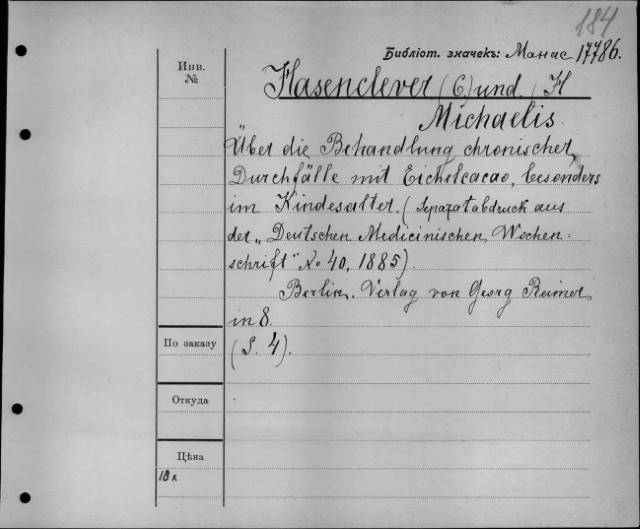 184
Библіот. значекъ: Манас 17786.
Инв.
№
Hasenclever (C.) und H
Michaelis.
Über die Behandlung chronischer
Durchfälle mit Eichelcacao, besonders
im Kindesalter. (Separatabdruck aus
der „Deutschen Medicinischen Wochen=
schrift" № 40, 1885).
Berlin. Verlag von Georg Reimer
in 8.
По заказу
(S. 4).
Откуда
Цѣна
18 к